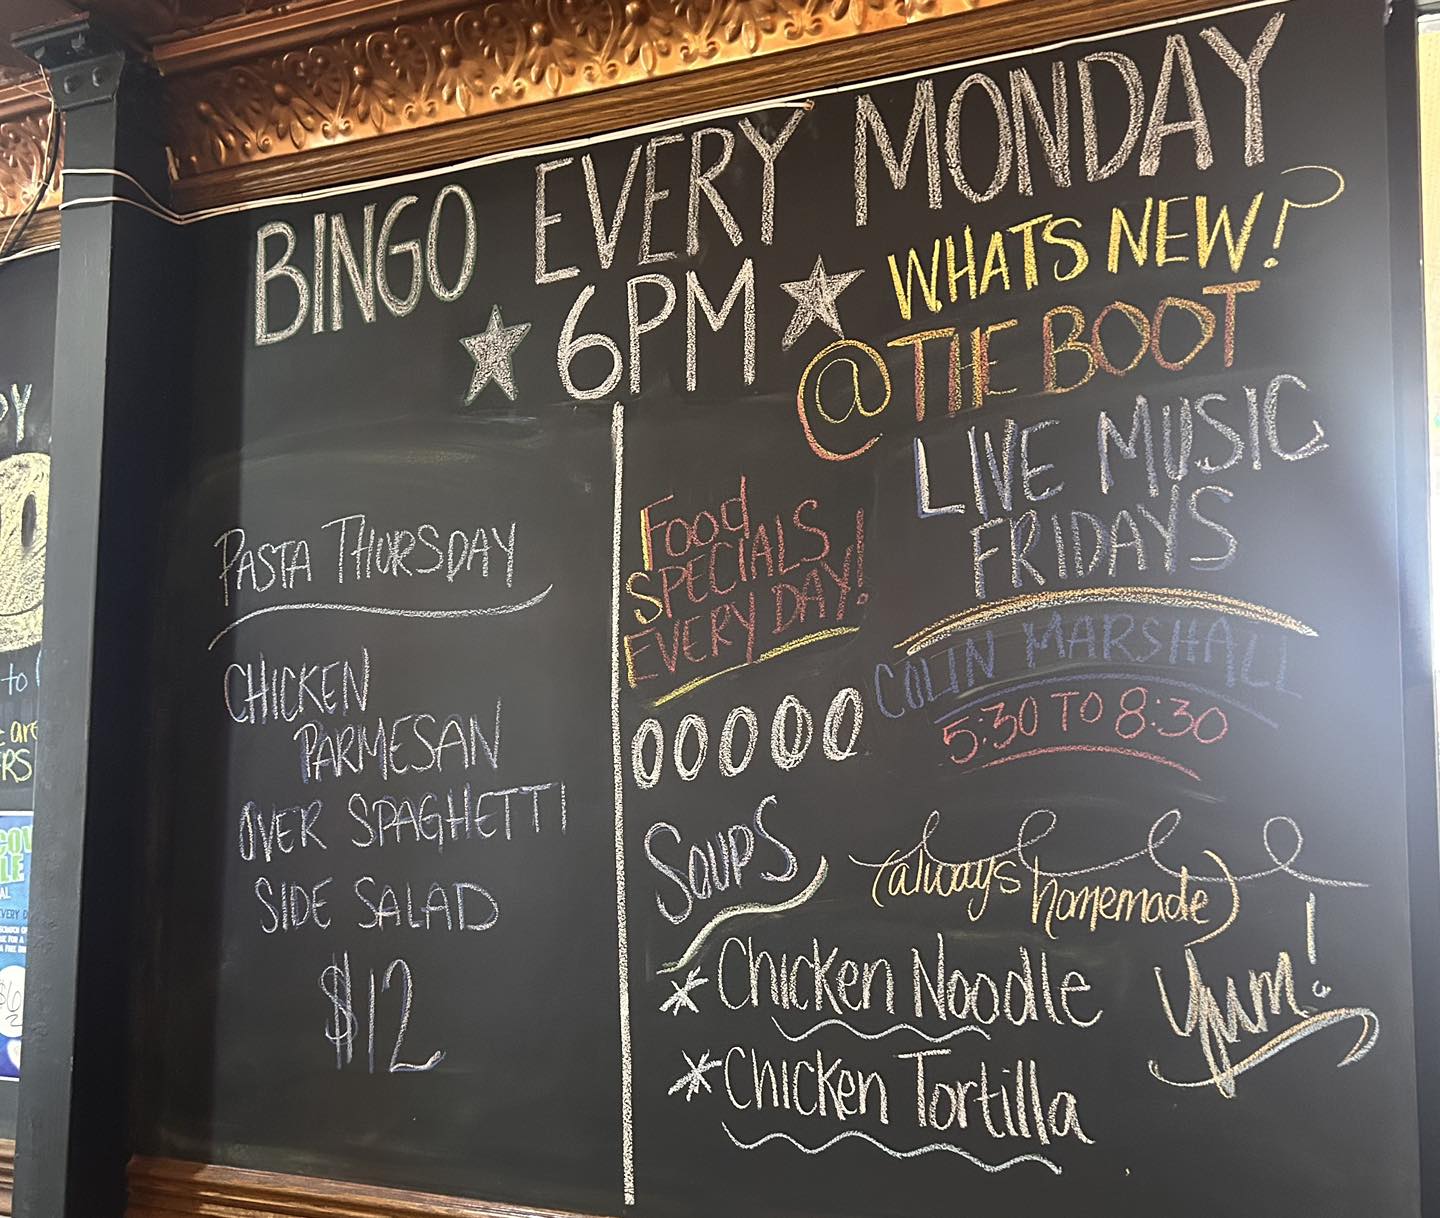 BINGO EVERY MONDAY
6PM
WHATS NEW?
@ THE BOOT
LIVE MUSIC
FRIDAYS
COLIN MARSHALL
5:30 TO 8:30
PASTA THURSDAY
CHICKEN
PARMESAN
OVER SPAGHETTI
SIDE SALAD
$12
Food
SPECIALS
EVERY DAY!
SOUPS
(always homemade)
* Chicken Noodle
* Chicken Tortilla
Yum!
PY
to
are
ERS
EVERY D
$6